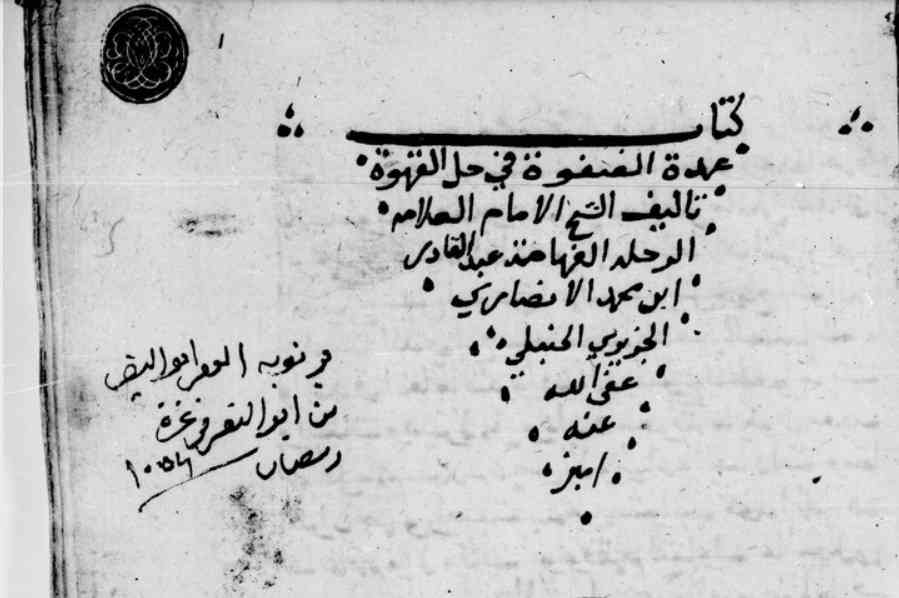 كتاب
عمدة الصفوة في حل القهوة
تاليف الشيخ الامام العلامه
الرحله الفهامة عبد القادر
ابن محمد الانصاري
الجزيري الحنبلي
عفى الله
عنه
امين
من
في غرة
رمضان